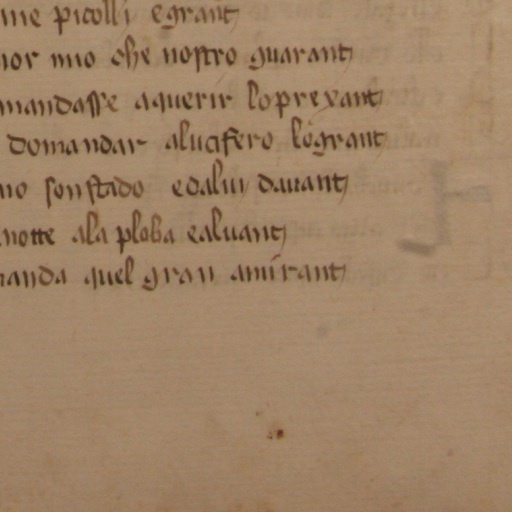 me picolli e grant
nor mio che nostro guarant
mandasse a querir lo prexant
domandar a lucifero lo grant
no son stado e da lui dauant
notte a la ploba e al uant
manda quel gran amirant